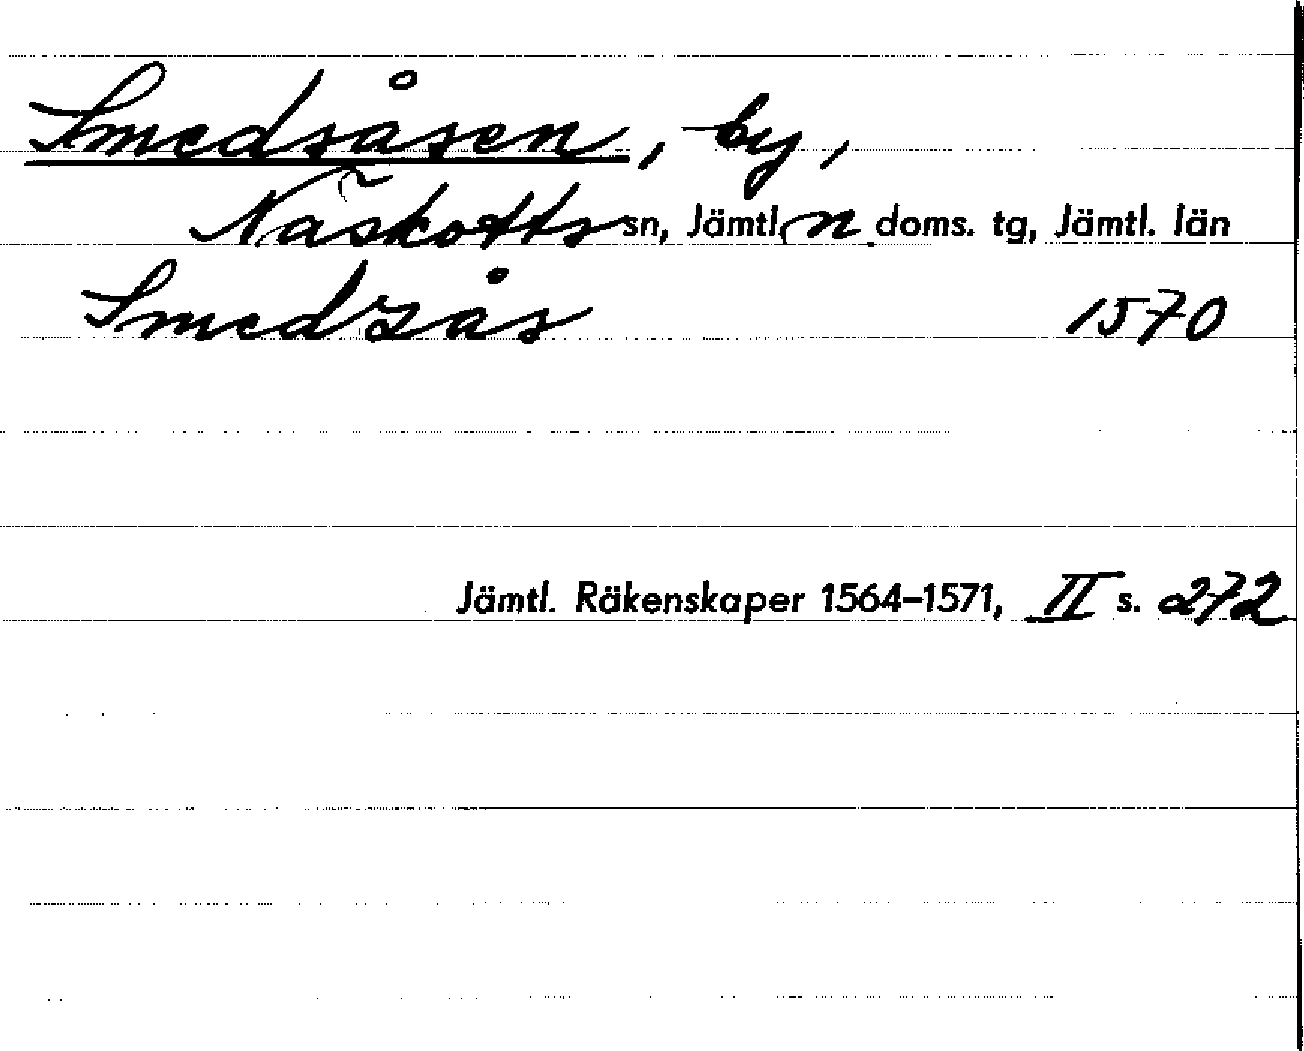 Smedsåsen, by,
Näskotts sn, Jämtl. n doms. tg, Jämtl. län
Smedzås 1570
Jämtl. Räkenskaper 1564-1571, II s. 272